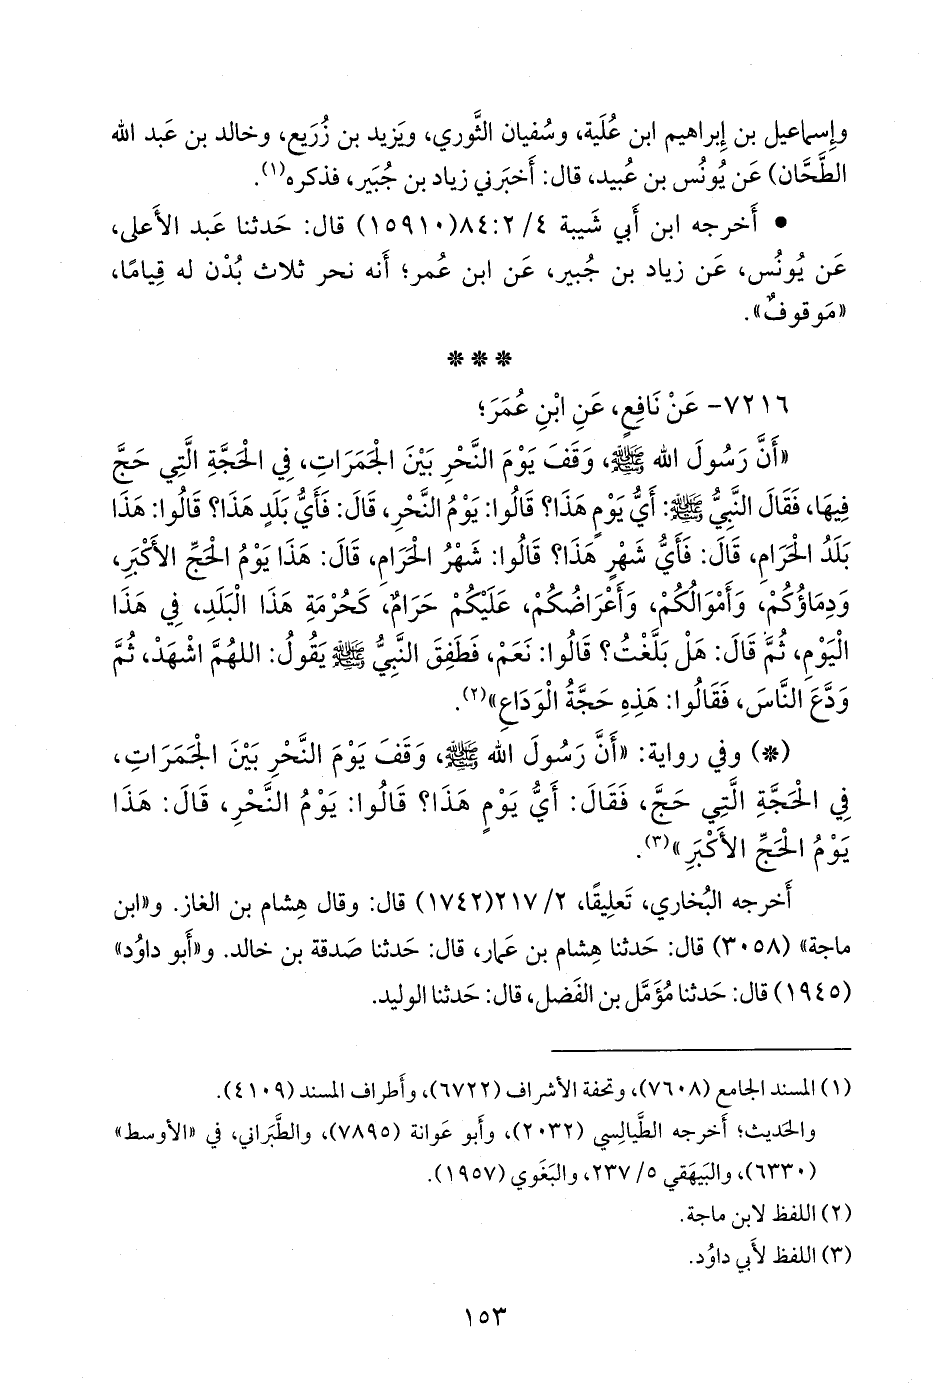 وإِسماعيل بن إِبراهيم ابن عُلَية، وسُفيان الثَّوري، ويَزيد بن زُرَيع، وخالد بن عَبد الله
الطَّحَّان) عَن يُونُس بن عُبيد، قال: أَخبَرني زياد بن جُبَير، فذكره(١).
• أَخرجه ابن أَبي شَيبة ٤/ ٢:٨٤(١٥٩١٠) قال: حَدثنا عَبد الأَعلى،
عَن يُونُس، عَن زياد بن جُبير، عَن ابن عُمر؛ أَنه نحر ثلاث بُدْن له قِيامًا،
«مَوقوفٌ».
***
٧٢١٦- عَنْ نَافِعٍ، عَنِ ابْنِ عُمَرَ؛
«أَنَّ رَسُولَ الله ﷺ، وَقَفَ يَوْمَ النَّحْرِ بَيْنَ الْجَمَرَاتِ، فِي الْحَجَّةِ الَّتِي حَجَّ
فِيهَا، فَقَالَ النَّبِيُّ ﷺ: أَيُّ يَوْمٍ هَذَا؟ قَالُوا: يَوْمُ النَّحْرِ، قَالَ: فَأَيُّ بَلَدٍ هَذَا؟ قَالُوا: هَذَا
بَلَدُ الْحَرَامِ، قَالَ: فَأَيُّ شَهْرٍ هَذَا؟ قَالُوا: شَهْرُ الْحَرَامِ، قَالَ: هَذَا يَوْمُ الْحَجِّ الأَكْبَرِ،
وَدِمَاؤُكُمْ، وَأَمْوَالُكُمْ، وَأَعْرَاضُكُمْ، عَلَيْكُمْ حَرَامٌ، كَحُرْمَةِ هَذَا الْبَلَدِ، فِي هَذَا
الْيَوْمِ، ثُمَّ قَالَ: هَلْ بَلَّغْتُ؟ قَالُوا: نَعَمْ، فَطَفِقَ النَّبِيُّ ﷺ يَقُولُ: اللهُمَّ اشْهَدْ، ثُمَّ
وَدَّعَ النَّاسَ، فَقَالُوا: هَذِهِ حَجَّةُ الْوَدَاعِ»(٢).
(*) وفي رواية: «أَنَّ رَسُولَ الله ﷺ، وَقَفَ يَوْمَ النَّحْرِ بَيْنَ الْجَمَرَاتِ،
فِي الْحَجَّةِ الَّتِي حَجَّ، فَقَالَ: أَيُّ يَوْمٍ هَذَا؟ قَالُوا: يَوْمُ النَّحْرِ، قَالَ: هَذَا
يَوْمُ الْحَجِّ الأَكْبَرِ»(٣).
أَخرجه البُخاري، تَعلِيقًا، ٢/ ٢١٧(١٧٤٢) قال: وقال هِشام بن الغاز. و«ابن
ماجة» (٣٠٥٨) قال: حَدثنا هِشام بن عَمار، قال: حَدثنا صَدقة بن خالد. و«أَبو داوُد»
(١٩٤٥) قال: حَدثنا مُؤَمَّل بن الفَضل، قال: حَدثنا الوليد.
(١) المسند الجامع (٧٦٠٨)، وتحفة الأشراف (٦٧٢٢)، وأَطراف المسند (٤١٠٩).
والحَديث؛ أَخرجه الطَّيالِسي (٢٠٣٢)، وأَبو عَوانة (٧٨٩٥)، والطَّبَراني، في «الأوسط»
(٦٣٣٠)، والبَيهَقي ٥/ ٢٣٧، والبَغَوي (١٩٥٧).
(٢) اللفظ لابن ماجة.
(٣) اللفظ لأَبي داوُد.
١٥٣